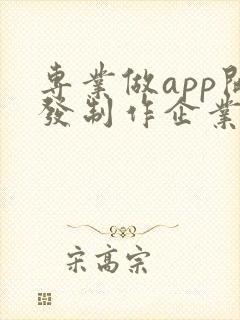 專業做app開
發制作企業
宋高宗